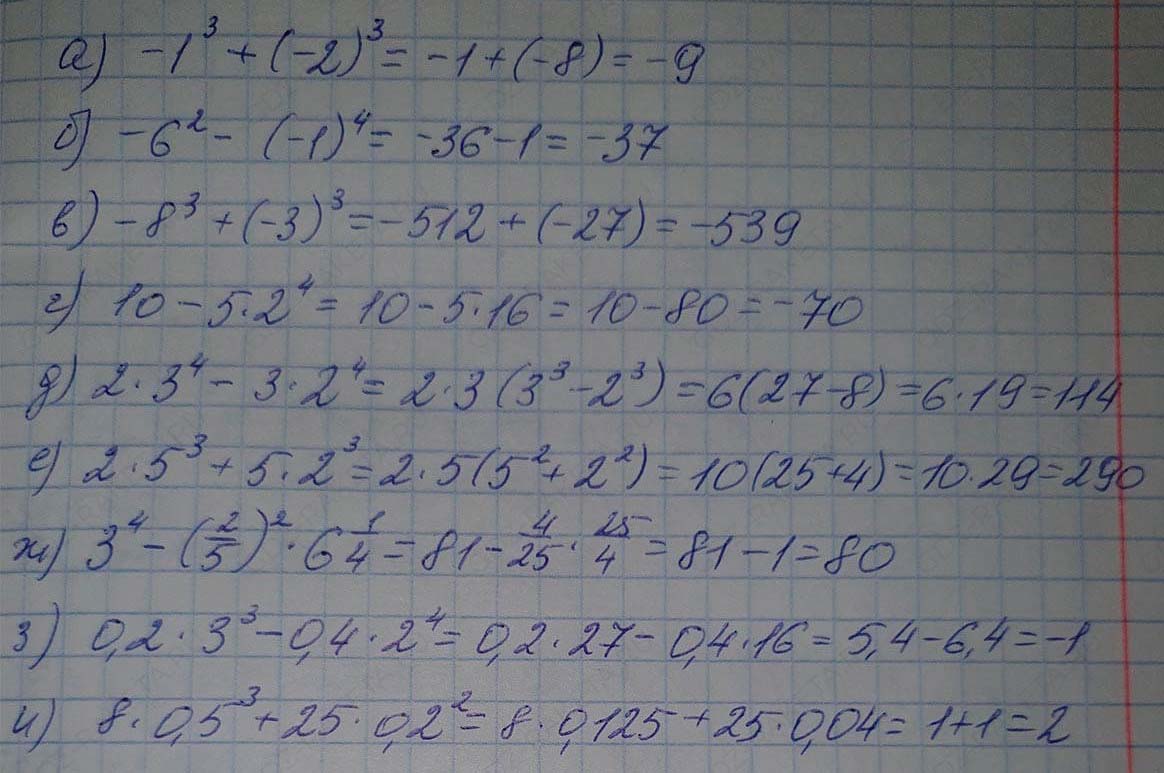 а) -1³ + (-2)³ = -1 + (-8) = -9
б) -6² - (-1)⁴ = -36 - 1 = -37
в) -8³ + (-3)³ = -512 + (-27) = -539
г) 10 - 5·2⁴ = 10 - 5·16 = 10 - 80 = -70
д) 2·3⁴ - 3·2⁴ = 2·3(3³ - 2³) = 6(27-8) = 6·19 = 114
е) 2·5³ + 5·2³ = 2·5(5² + 2²) = 10(25+4) = 10·29 = 290
ж) 3⁴ - (2/5)²·6 1/4 = 81 - 4/25·25/4 = 81 - 1 = 80
з) 0,2·3³ - 0,4·2⁴ = 0,2·27 - 0,4·16 = 5,4 - 6,4 = -1
и) 8·0,5³ + 25·0,2² = 8·0,125 + 25·0,04 = 1+1 = 2